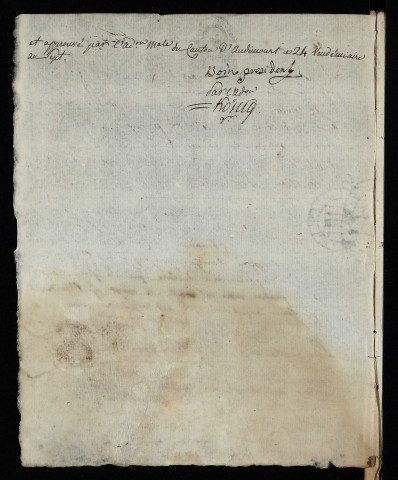 et approuvé par l'ad.on m.ale du Canton d'Audincourt ce 24 Vendémiaire
an Sept.
président
par l'ad.on
König